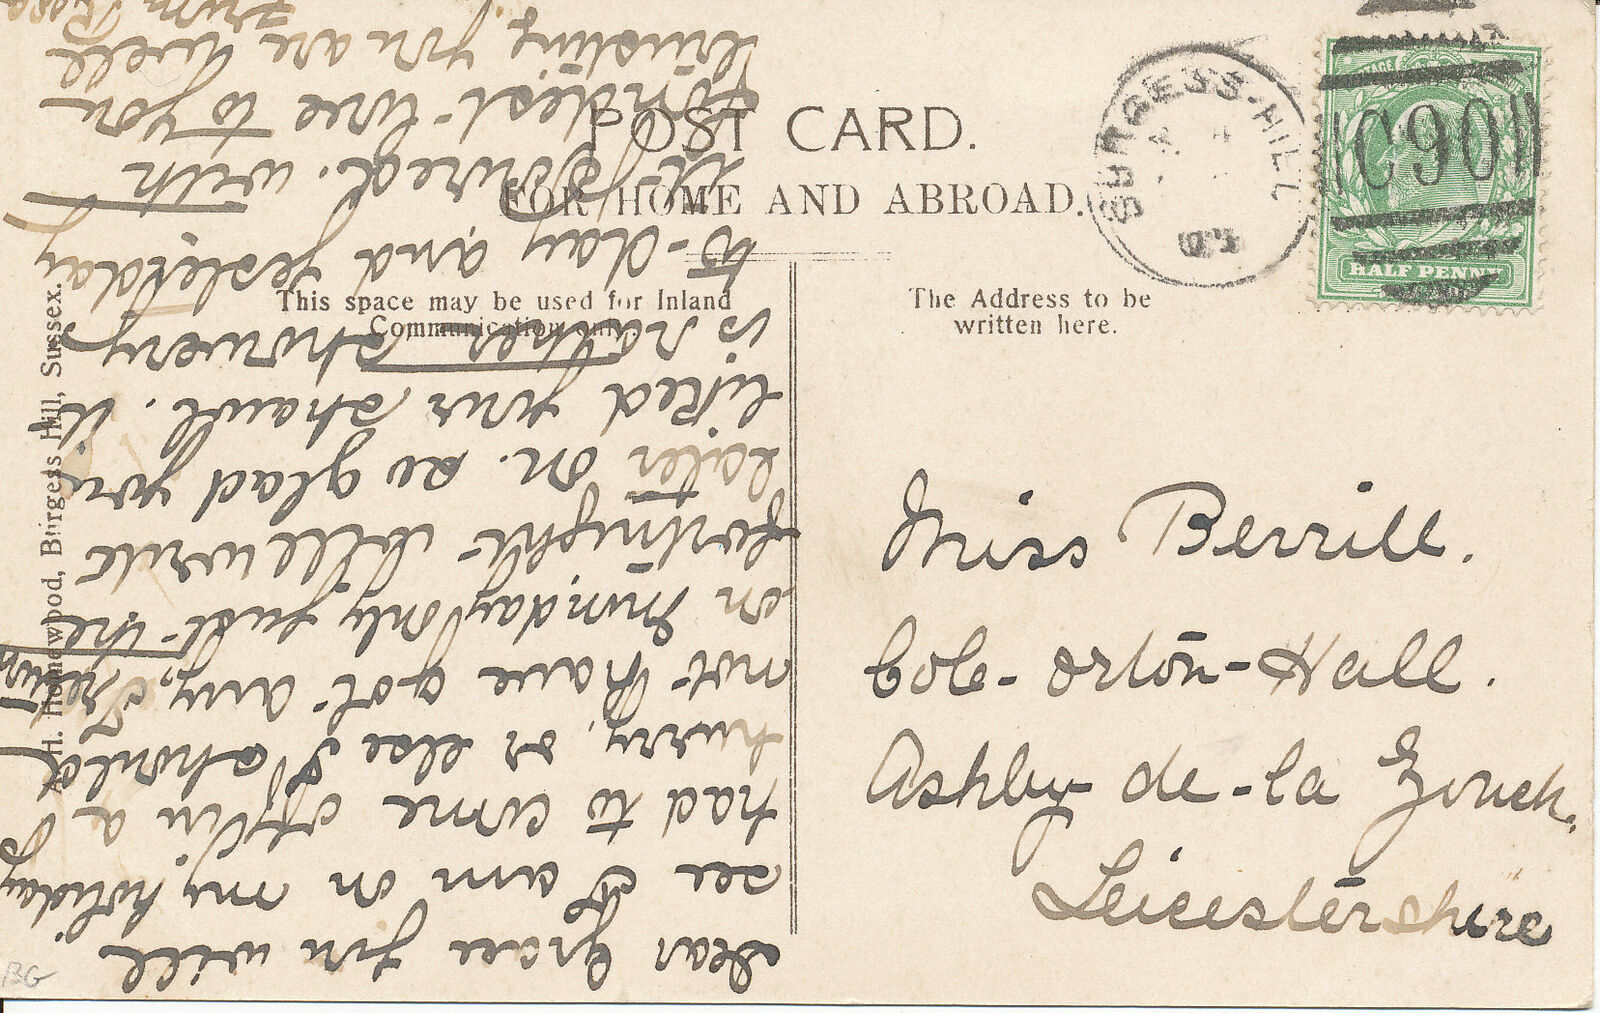 POST CARD.
FOR HOME AND ABROAD.
This space may be used for Inland
Communication only.
The Address to be
written here.
BURGESS-HILL
C90
HALF PENNY
H. Homewood, Burgess Hill, Sussex.
Dear Grace you will
see I am on my holiday
had to come off in a
hurry, or else I should
not have got any, I return
on Monday only just the
fortnight will write
later on. so glad you
liked your shawl. it
is rather showery
to-day and yesterday
it poured. with
fondest love to you
trusting you are well
from Rosa
Miss Berrill.
Cole-Orton-Hall.
Ashby-de-la Zouch.
Leicestershire
BG